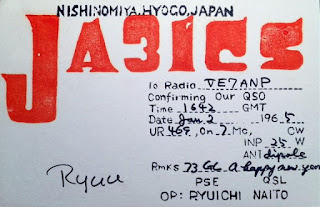 NISHINOMIYA, HYOGO, JAPAN
JA3ICS
To Radio VE7ANP
Confirming Our QSO
Time 1642 GMT
Date Jan 2 1965
UR 469, On 7 Mc, CW
INP 25 W
ANT dipole
Rmks 73 A happy new year
PSE QSL
Ryuu
OP: RYUICHI NAITO